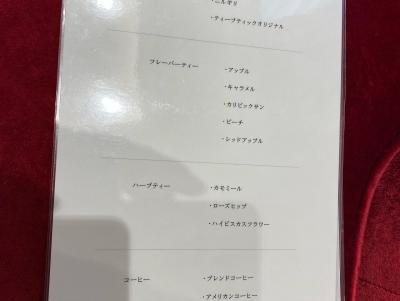 ・ニルギリ
・ティーブティックオリジナル
フレーバーティー ・アップル
・キャラメル
・カリビックサン
・ピーチ
・レッドアップル
ハーブティー ・カモミール
・ローズヒップ
・ハイビスカスフラワー
コーヒー ・ブレンドコーヒー
・アメリカンコーヒー